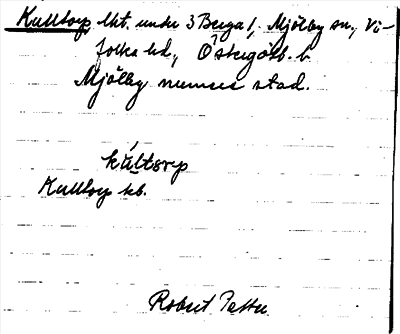 Kulltorp lht. under 3 Berga /. Mjölby sn., Vi-
folka hd., Östergötl. l.
Mjölby numera stad.
kúltorp
Kulltorp hb.
Robert